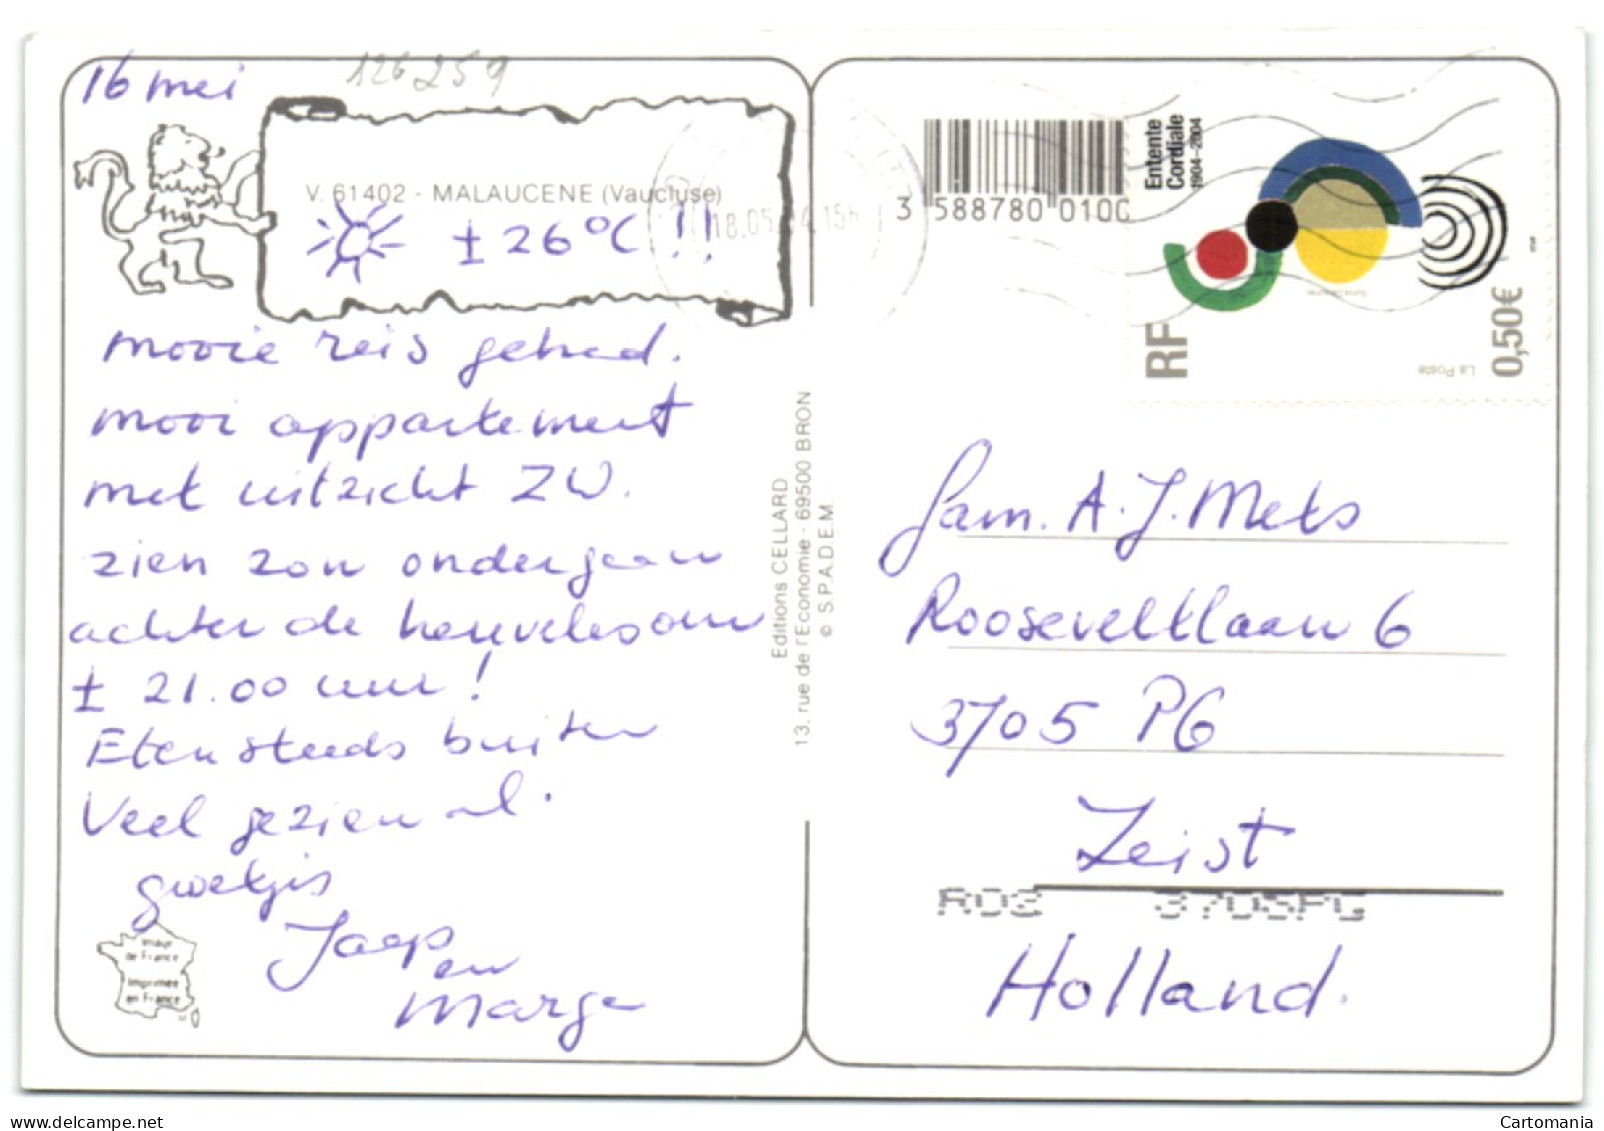 16 mei
126259
V. 61402 - MALAUCENE (Vaucluse)
± 26°C !!
mooie reis gehad.
mooi appartement
met uitzicht ZW.
zien zon ondergaan
achter de heuvels om
± 21.00 uur!
Eten steeds buiten
Veel gezien al.
groetjes
Jaap
en
Marga
Imagé
de France
Imprimée
en France
Editions CELLARD
13, rue de l'Economie - 69500 BRON
© S.P.A.D.E.M.
18.05.04 15H
3 588780 0100
Entente
Cordiale
1904-2004
RF
La Poste
0,50€
Fam. A. J. Mets
Rooseveltlaan 6
3705 PG
Zeist
RO2 3705PG
Holland.
delcampe.net
Cartomania